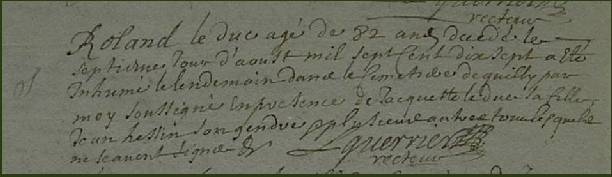 recteur
Roland le duc agé de 82 ans decede le
septieme Jour d'aoust mil sept Cent dix sept a ete
Inhumé le lendemain dans le Cimetiere de quilly par
moy soussigné en presence de Jacquette le duc sa fille
Jan hessin son gendre & plusieurs autres tous lesquels
ne scavent signer &
Lguerrier
recteur